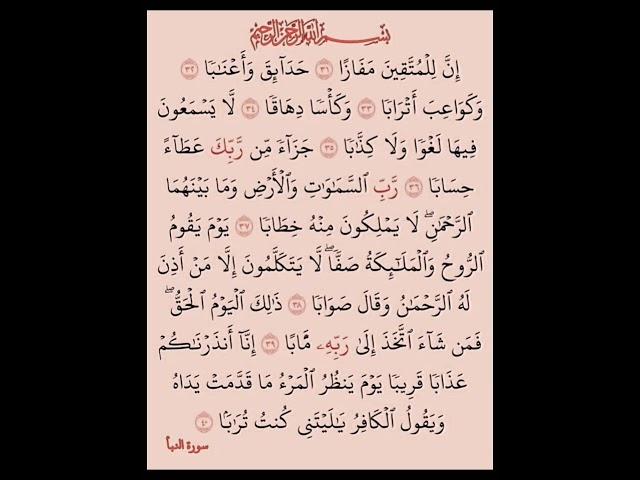 بِسْمِ اللَّهِ الرَّحْمَٰنِ الرَّحِيمِ
إِنَّ لِلۡمُتَّقِينَ مَفَازًا ٣١ حَدَآئِقَ وَأَعۡنَٰبٗا ٣٢
وَكَوَاعِبَ أَتۡرَابٗا ٣٣ وَكَأۡسٗا دِهَاقٗا ٣٤ لَّا يَسۡمَعُونَ
فِيهَا لَغۡوٗا وَلَا كِذَّٰبٗا ٣٥ جَزَآءٗ مِّن رَّبِّكَ عَطَآءً
حِسَابٗا ٣٦ رَّبِّ ٱلسَّمَٰوَٰتِ وَٱلۡأَرۡضِ وَمَا بَيۡنَهُمَا
ٱلرَّحۡمَٰنِۖ لَا يَمۡلِكُونَ مِنۡهُ خِطَابٗا ٣٧ يَوۡمَ يَقُومُ
ٱلرُّوحُ وَٱلۡمَلَٰٓئِكَةُ صَفّٗاۖ لَّا يَتَكَلَّمُونَ إِلَّا مَنۡ أَذِنَ
لَهُ ٱلرَّحۡمَٰنُ وَقَالَ صَوَابٗا ٣٨ ذَٰلِكَ ٱلۡيَوۡمُ ٱلۡحَقُّۖ
فَمَن شَآءَ ٱتَّخَذَ إِلَىٰ رَبِّهِۦ مَـَٔابًا ٣٩ إِنَّآ أَنذَرۡنَٰكُمۡ
عَذَابٗا قَرِيبٗا يَوۡمَ يَنظُرُ ٱلۡمَرۡءُ مَا قَدَّمَتۡ يَدَاهُ
وَيَقُولُ ٱلۡكَافِرُ يَٰلَيۡتَنِي كُنتُ تُرَٰبَۢا ٤٠
سورة النبأ